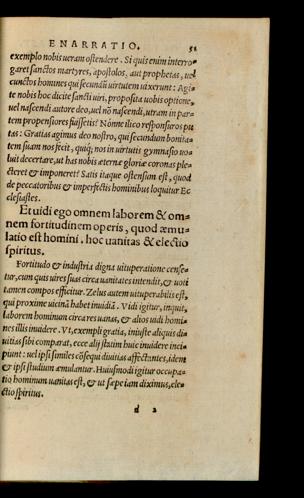 ENARRATIO. 51
exemplo nobis ueram ostendere. Si quis enim interro-
garet sanctos martyres, apostolos, aut prophetas, uel
cunctos homines qui secundū uirtutem uixerunt: Agi-
te nobis hoc dicite sancti uiri, proposita uobis optione,
uel nascendi autore deo, uel nō nascendi, utram in par-
tem propensiores fuissetis? Nónne illico responsuros pu
tas: Gratias agimus deo nostro, qui secundum bonita-
tem suam nos fecit, quiq; nos in uirtutis gymnasio uo-
luit decertare, ut has nobis æternæ gloriæ coronas ple-
cteret & imponeret? Satis itaque ostensum est, quod
de peccatoribus & imperfectis hominibus loquitur Ec
clesiastes.
Et uidi ego omnem laborem & om-
nem fortitudinem operis, quod æmu-
latio est homini, hoc uanitas & electio
spiritus.
Fortitudo & industria digna uituperatione cense-
tur, cum quis uires suas circa uanitates intendit, & uoti
tamen compos efficitur. Zelus autem uituperabilis est,
qui proxime uicinā habet inuidiā. Vidi igitur, inquit,
laborem hominum circa res uanas, & alios uidi homi-
nes illis inuidere. Vt, exempli gratia, iniuste aliquis di-
uitias sibi comparat, ecce alij statim huic inuidere inci-
piunt: uel ipsi similes cōseq diuitias affectantes, idem
& ipsi studium æmulantur. Huiusmodi igitur occupa-
tio hominum uanitas est, & ut sæpe iam diximus, ele-
ctio spiritus.
d 2